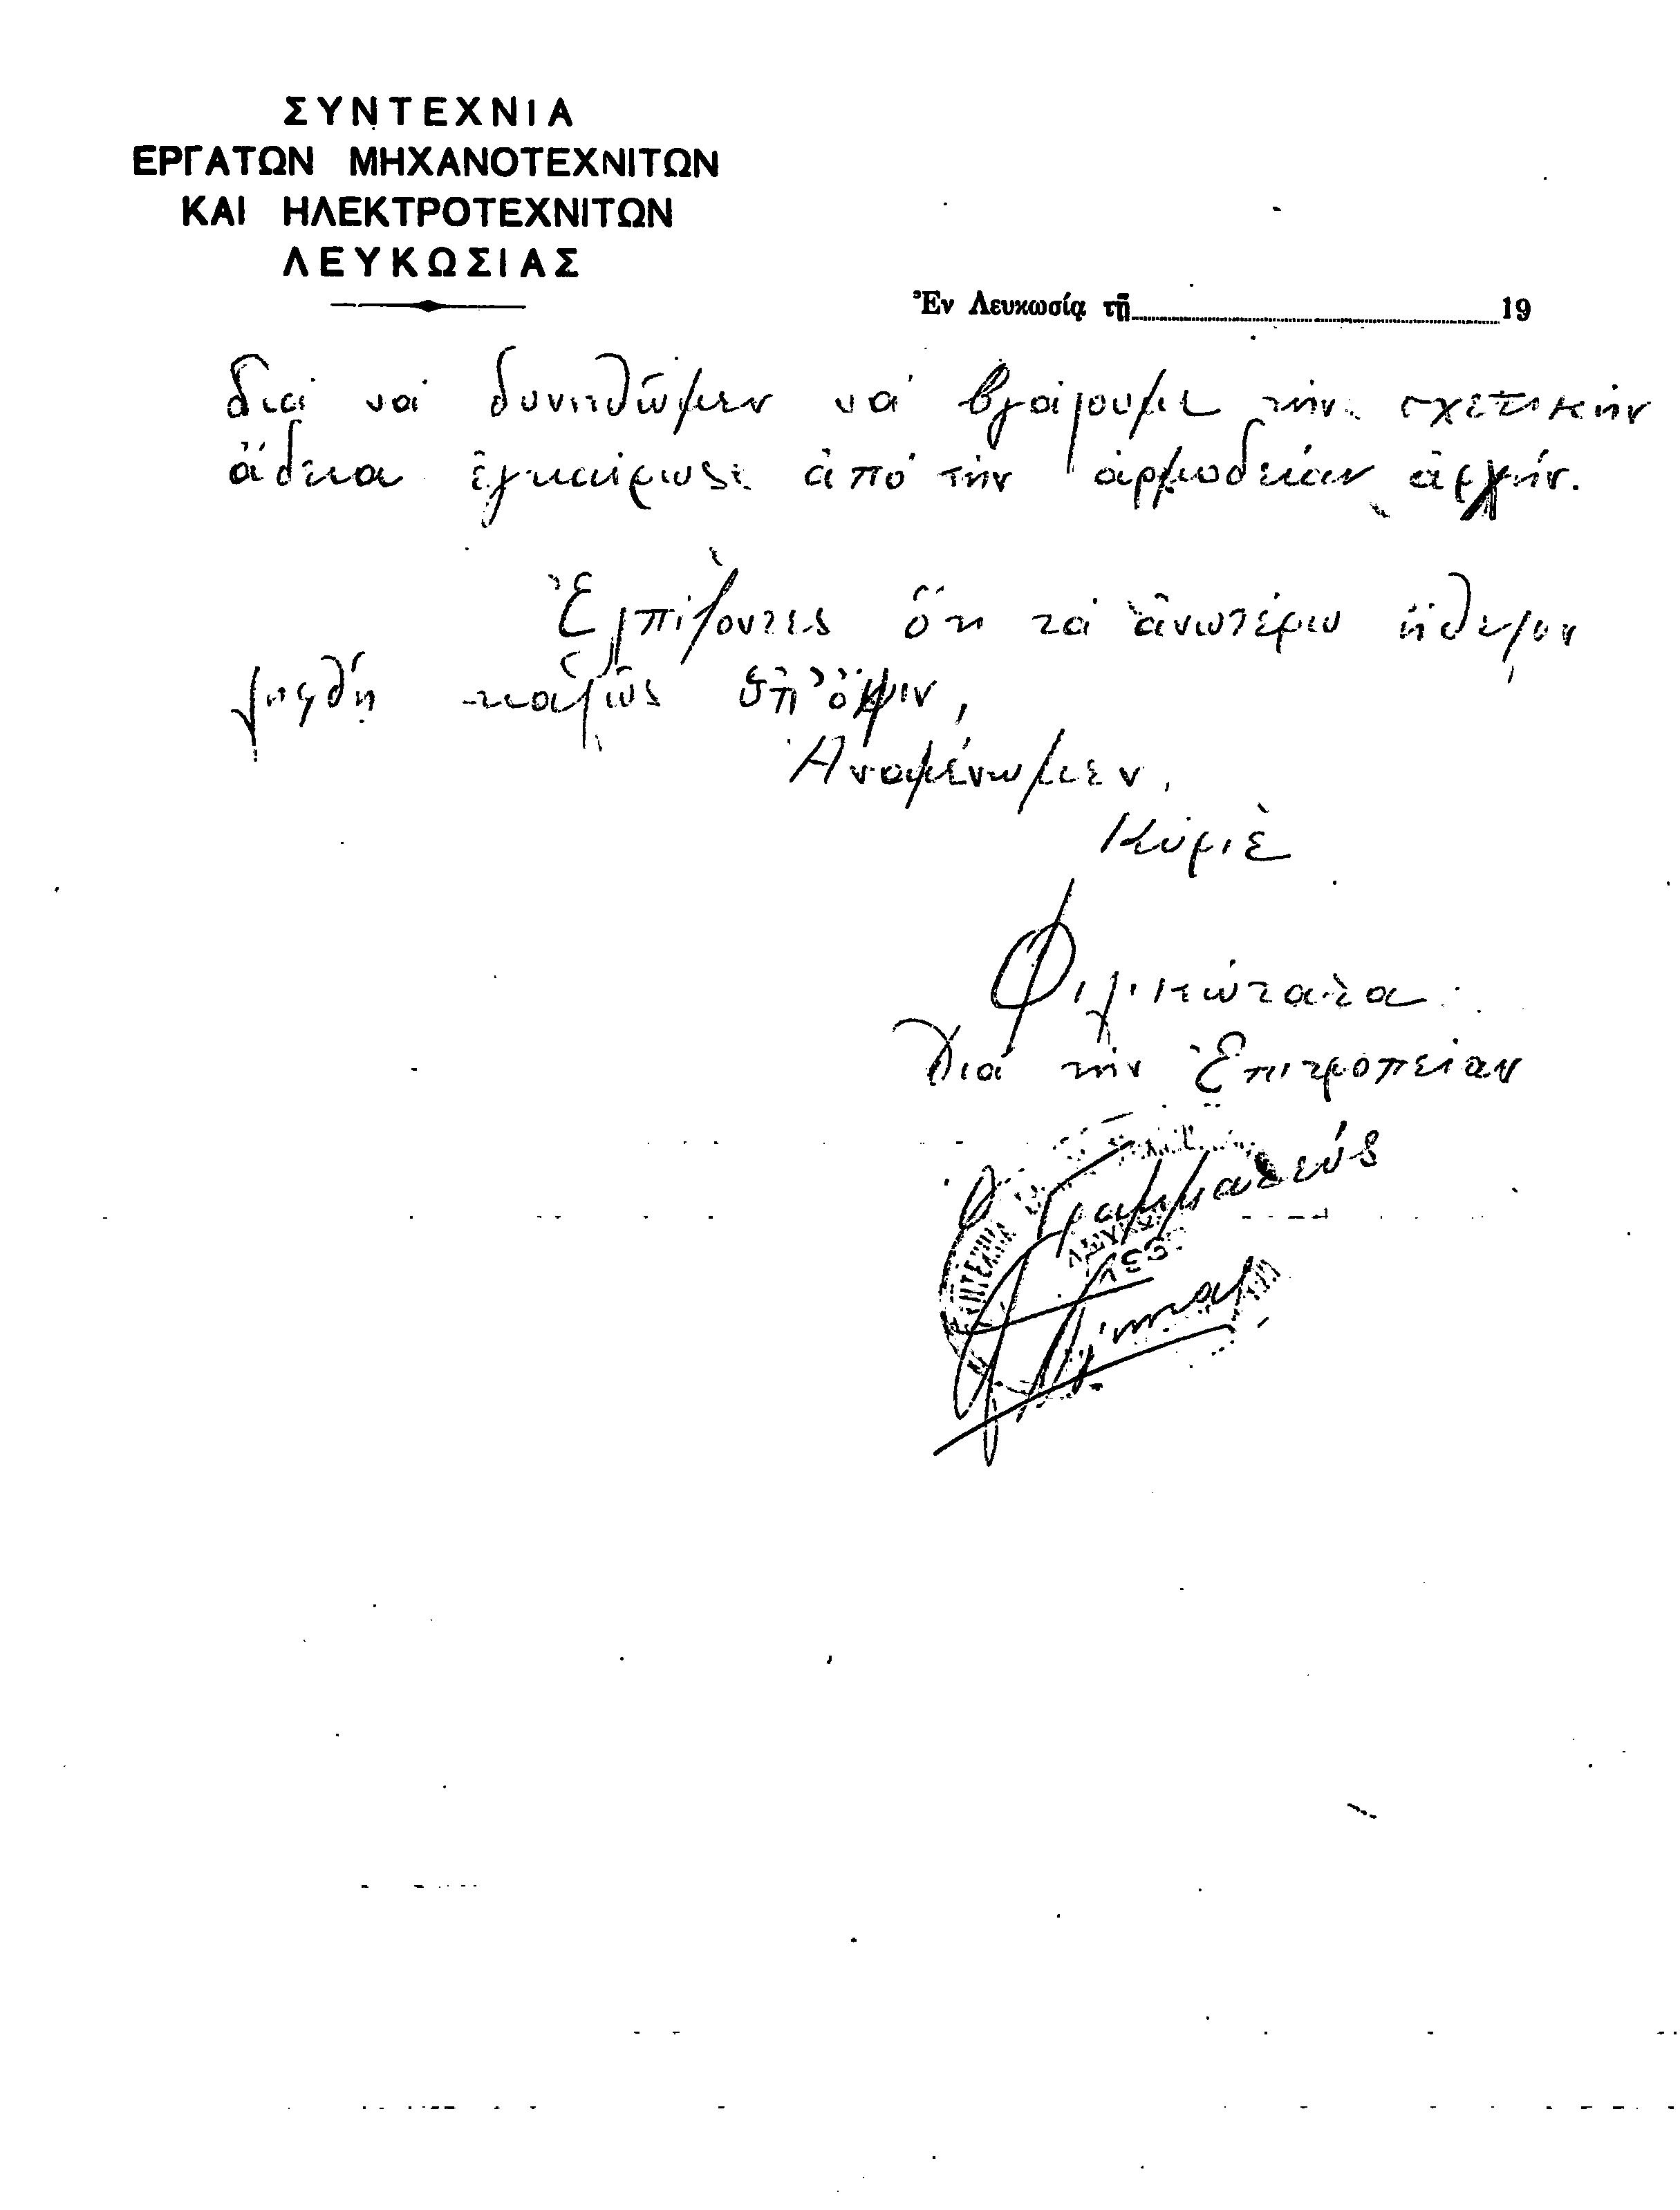 ΣΥΝΤΕΧΝΙΑ
ΕΡΓΑΤΩΝ ΜΗΧΑΝΟΤΕΧΝΙΤΩΝ
ΚΑΙ ΗΛΕΚΤΡΟΤΕΧΝΙΤΩΝ
ΛΕΥΚΩΣΙΑΣ
Ἐν Λευκωσίᾳ τῇ 19
διά νά δυνηθῶμεν νά βγάλουμε τήν σχετικήν
ἄδεια ἐγκαίρως ἀπό τήν ἁρμοδείαν ἀρχήν.
Ἐλπίζοντες ὅτι τά ἀνωτέρω
ληφθῆ καλῶς ὑπ' ὄψιν,
Ἀναμένωμεν,
Κύριε
Φιλικώτατα
Διά τήν Ἐπιτροπείαν
Ὁ Γραμματεύς